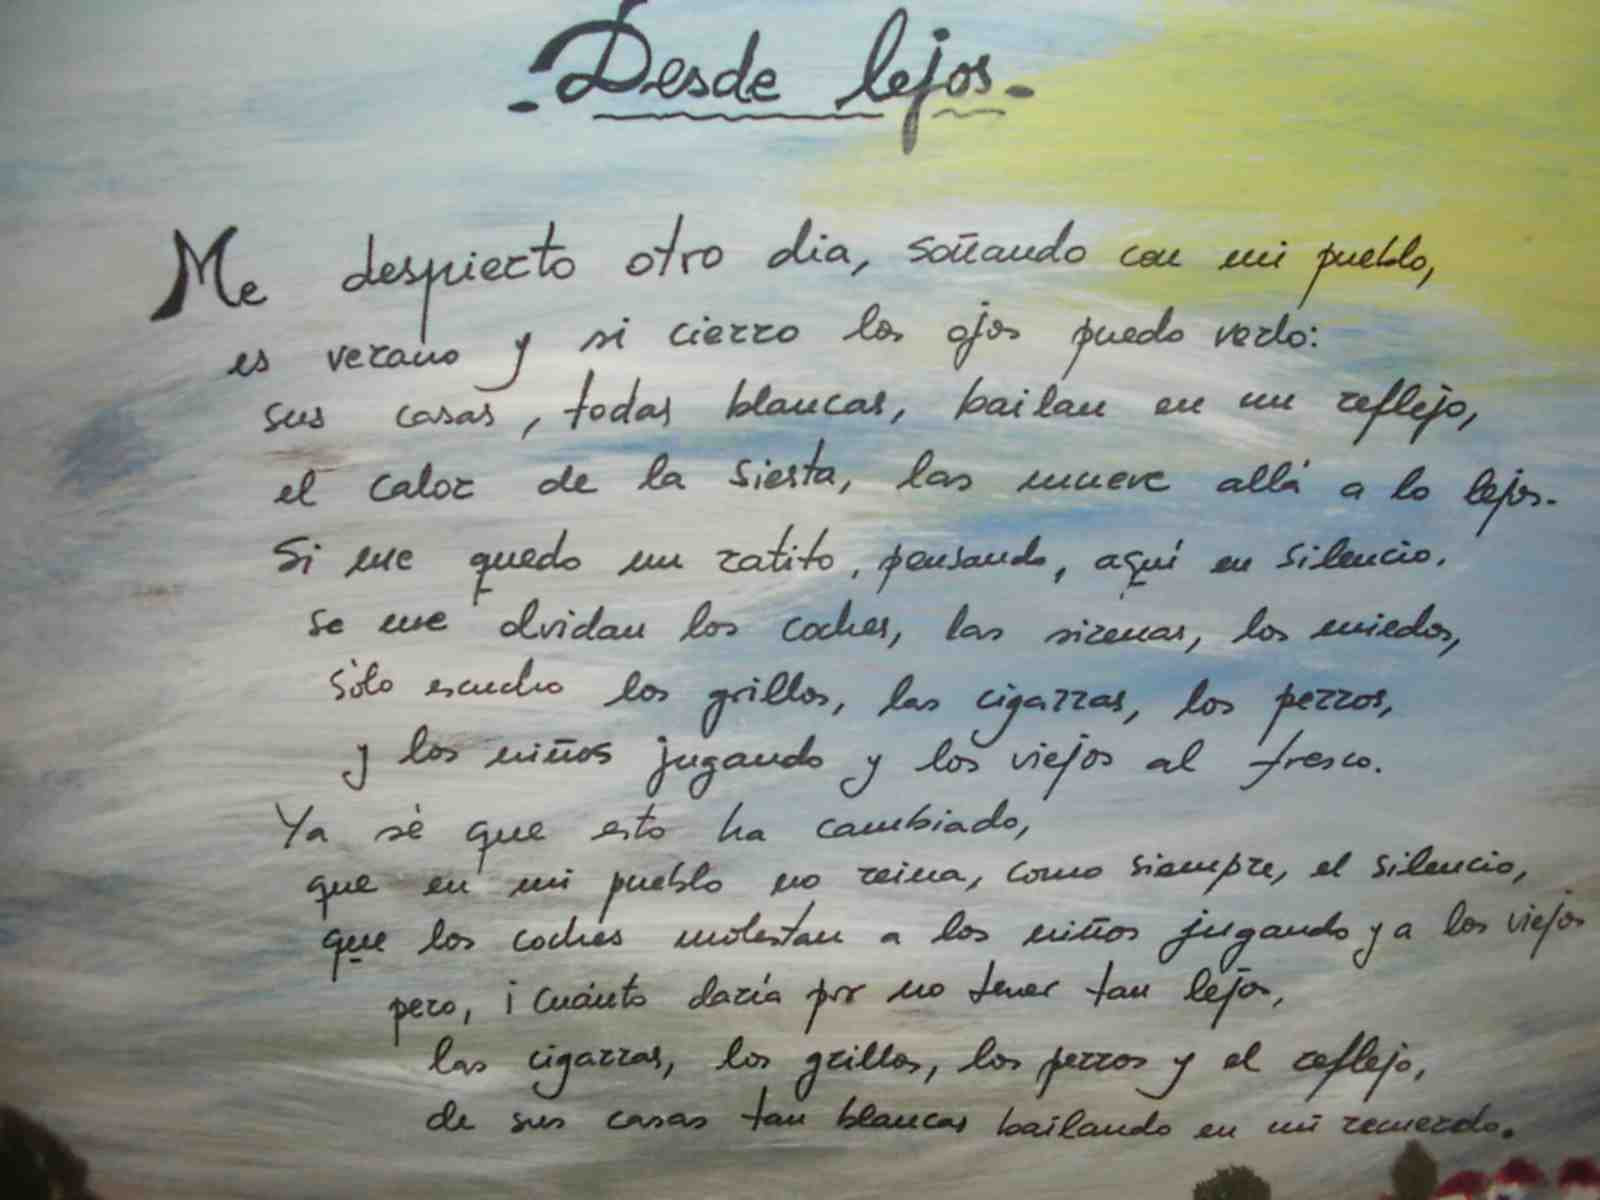 -Desde lejos-
Me despierto otro dia, soñando con mi pueblo,
es verano y si cierro los ojos puedo verlo:
sus casas, todas blancas, bailan en un reflejo,
el calor de la siesta, las mueve allá a lo lejos.
Si me quedo un ratito, pensando, aquí en silencio.
se me olvidan los coches, las sirenas, los miedos,
sólo escucho los grillos, las cigarras, los perros,
y los niños jugando y los viejos al fresco.
Ya sé que esto ha cambiado,
que en mi pueblo no reina, como siempre, el silencio,
que los coches molestan a los niños jugando y a los viejos
pero, ¡cuánto daría por no tener tan lejos,
las cigarras, los grillos, los perros y el reflejo,
de sus casas tan blancas bailando en mi recuerdo.